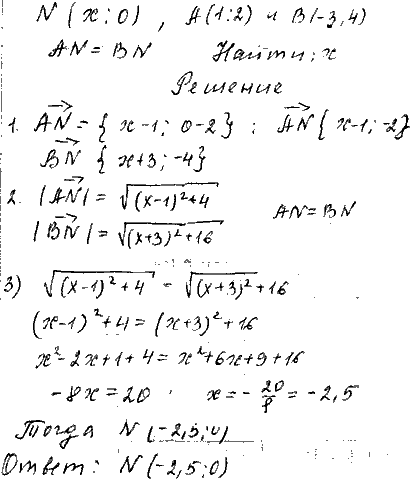 N (x; 0) , A(1; 2) и B(-3, 4)
AN = BN Найти: x
Решение
1. AN→ = { x-1; 0-2} ; AN→ { x-1; -2}
BN→ { x+3; -4}
2. |AN→| = √((x-1)²+4)
|BN→| = √((x+3)²+16) AN=BN
3) √((x-1)²+4) = √((x+3)²+16)
(x-1)²+4 = (x+3)²+16
x²-2x+1+4 = x²+6x+9+16
-8x = 20 x = -20/8 = -2,5
Тогда N (-2,5; 0)
Ответ: N (-2,5; 0)